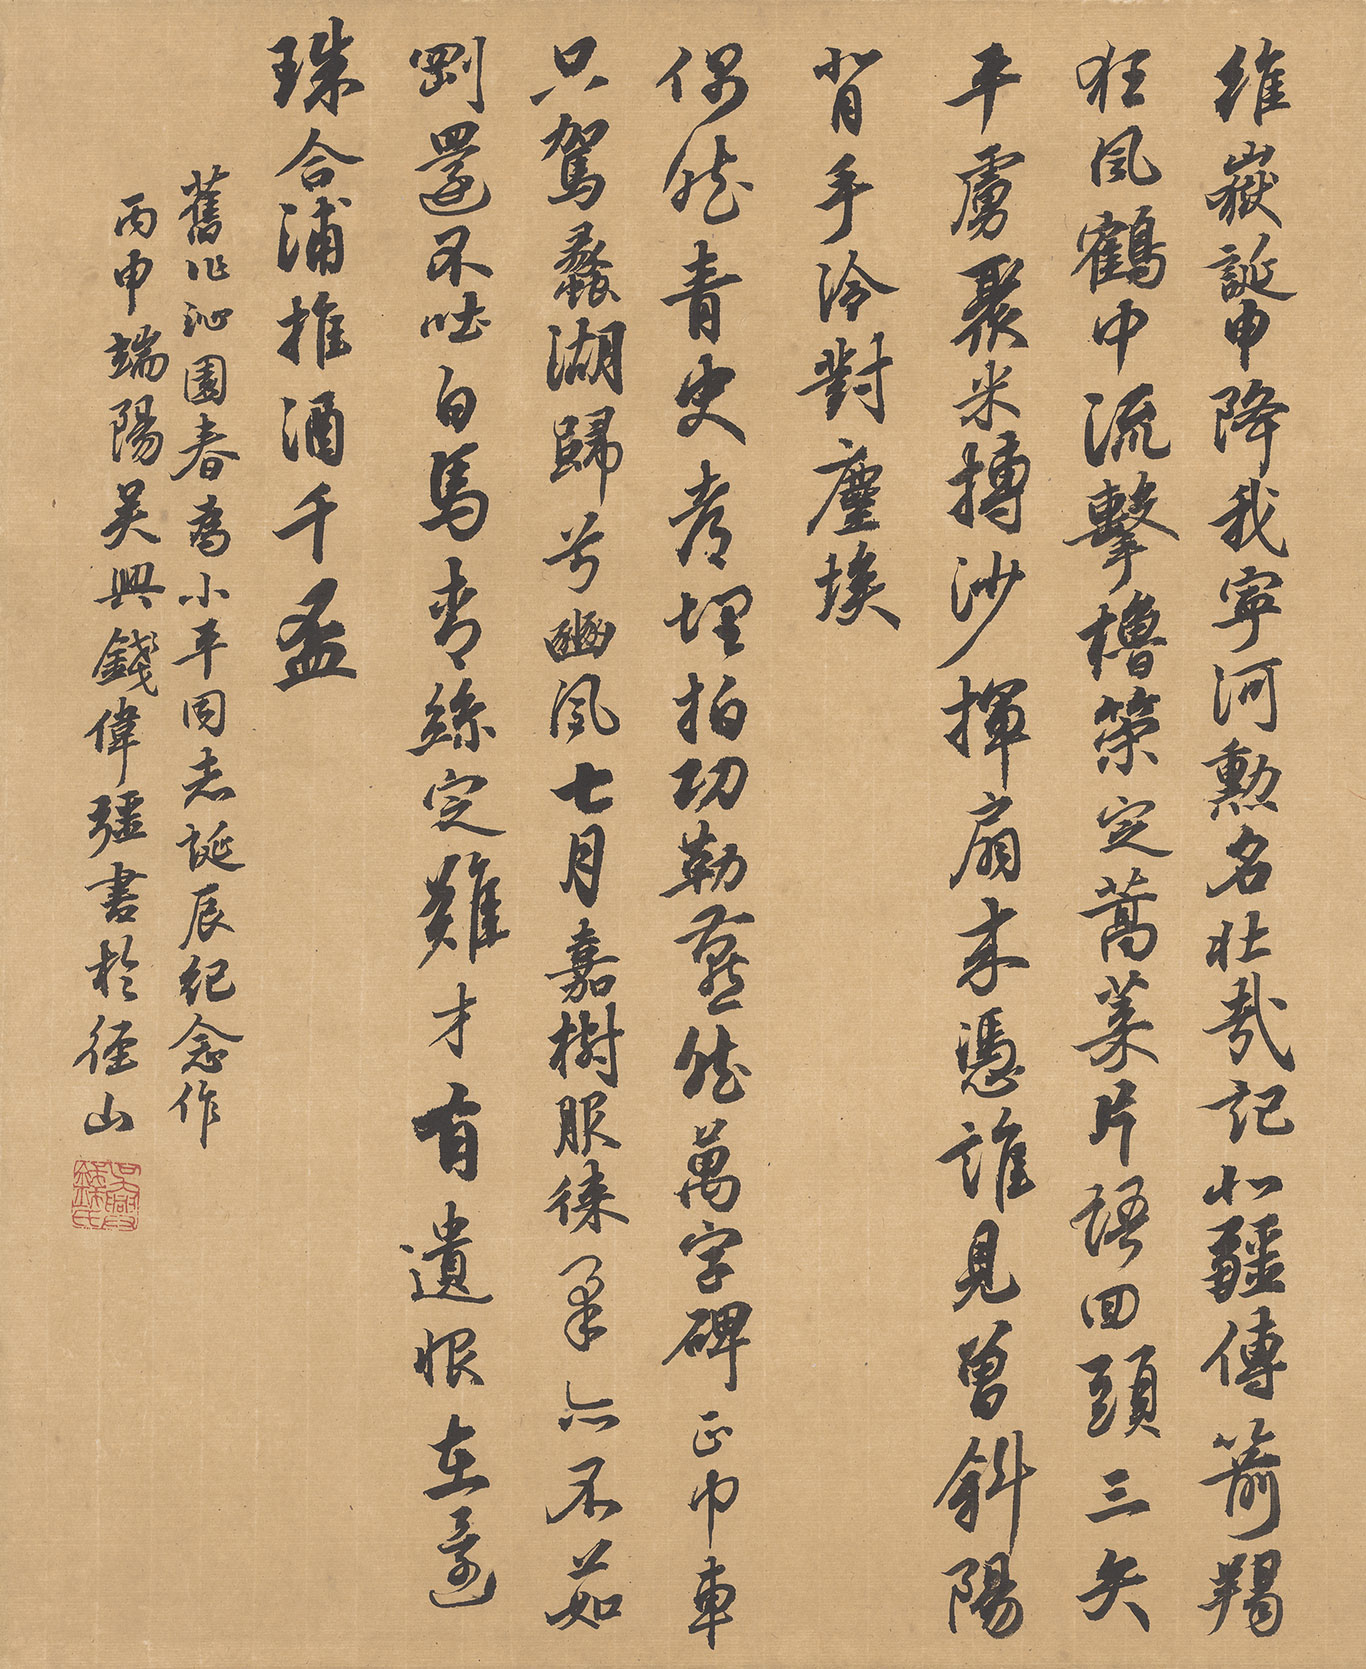 維嶽誕申降我寧河勳名壯哉記北疆傳箭羯
狂風鶴中流擊櫓策定蒿萊片語回頭三矢
平虜聚米摶沙揮扇來憑誰見曾斜陽
背手冷對塵埃
偶然青史埋拍功勒燕然萬字碑正巾車
只駕蠡湖歸兮豳風七月嘉樹服徠柔亦不茹
剛還不吐白馬青絲定難才有遺恨在還
珠合浦推酒千盃
舊作沁園春為小平同志誕辰紀念作
丙申端陽吳興錢偉彊書於徑山
吳興錢氏